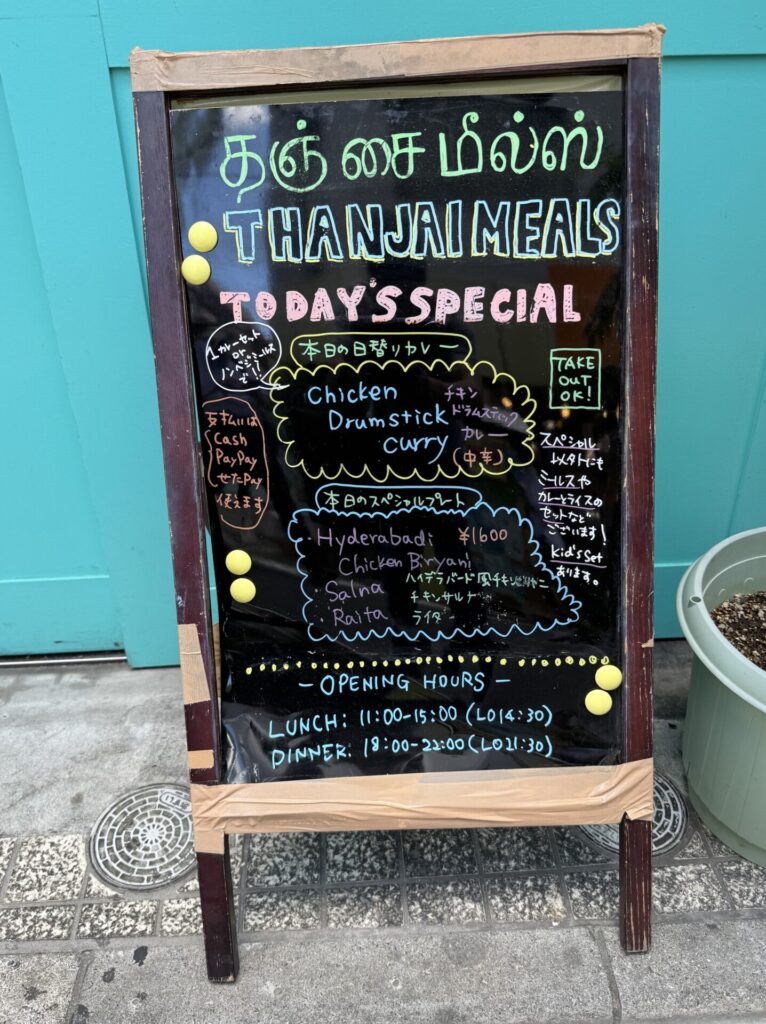 தஞ்சை மீல்ஸ்
THANJAI MEALS
TODAY'S SPECIAL
1カレーセット
or
ノンベジミールス
で!!
本日の日替りカレー
Chicken
Drumstick
curry
チキン
ドラムスティック
カレー
(中辛)
TAKE
OUT
OK!
支払いは
Cash
PayPay
せたPay
使えます
スペシャル
以外にも
ミールスや
カレーとライスの
セットなど
ございます!
Kid's Set
あります。
本日のスペシャルプレート
Hyderabadi ¥1600
Chicken Biryani
ハイデラバード風チキンビリヤニ
Salna チキンサルナ
Raita ライタ
- OPENING HOURS -
LUNCH: 11:00-15:00 (LO14:30)
DINNER: 18:00-22:00 (LO21:30)